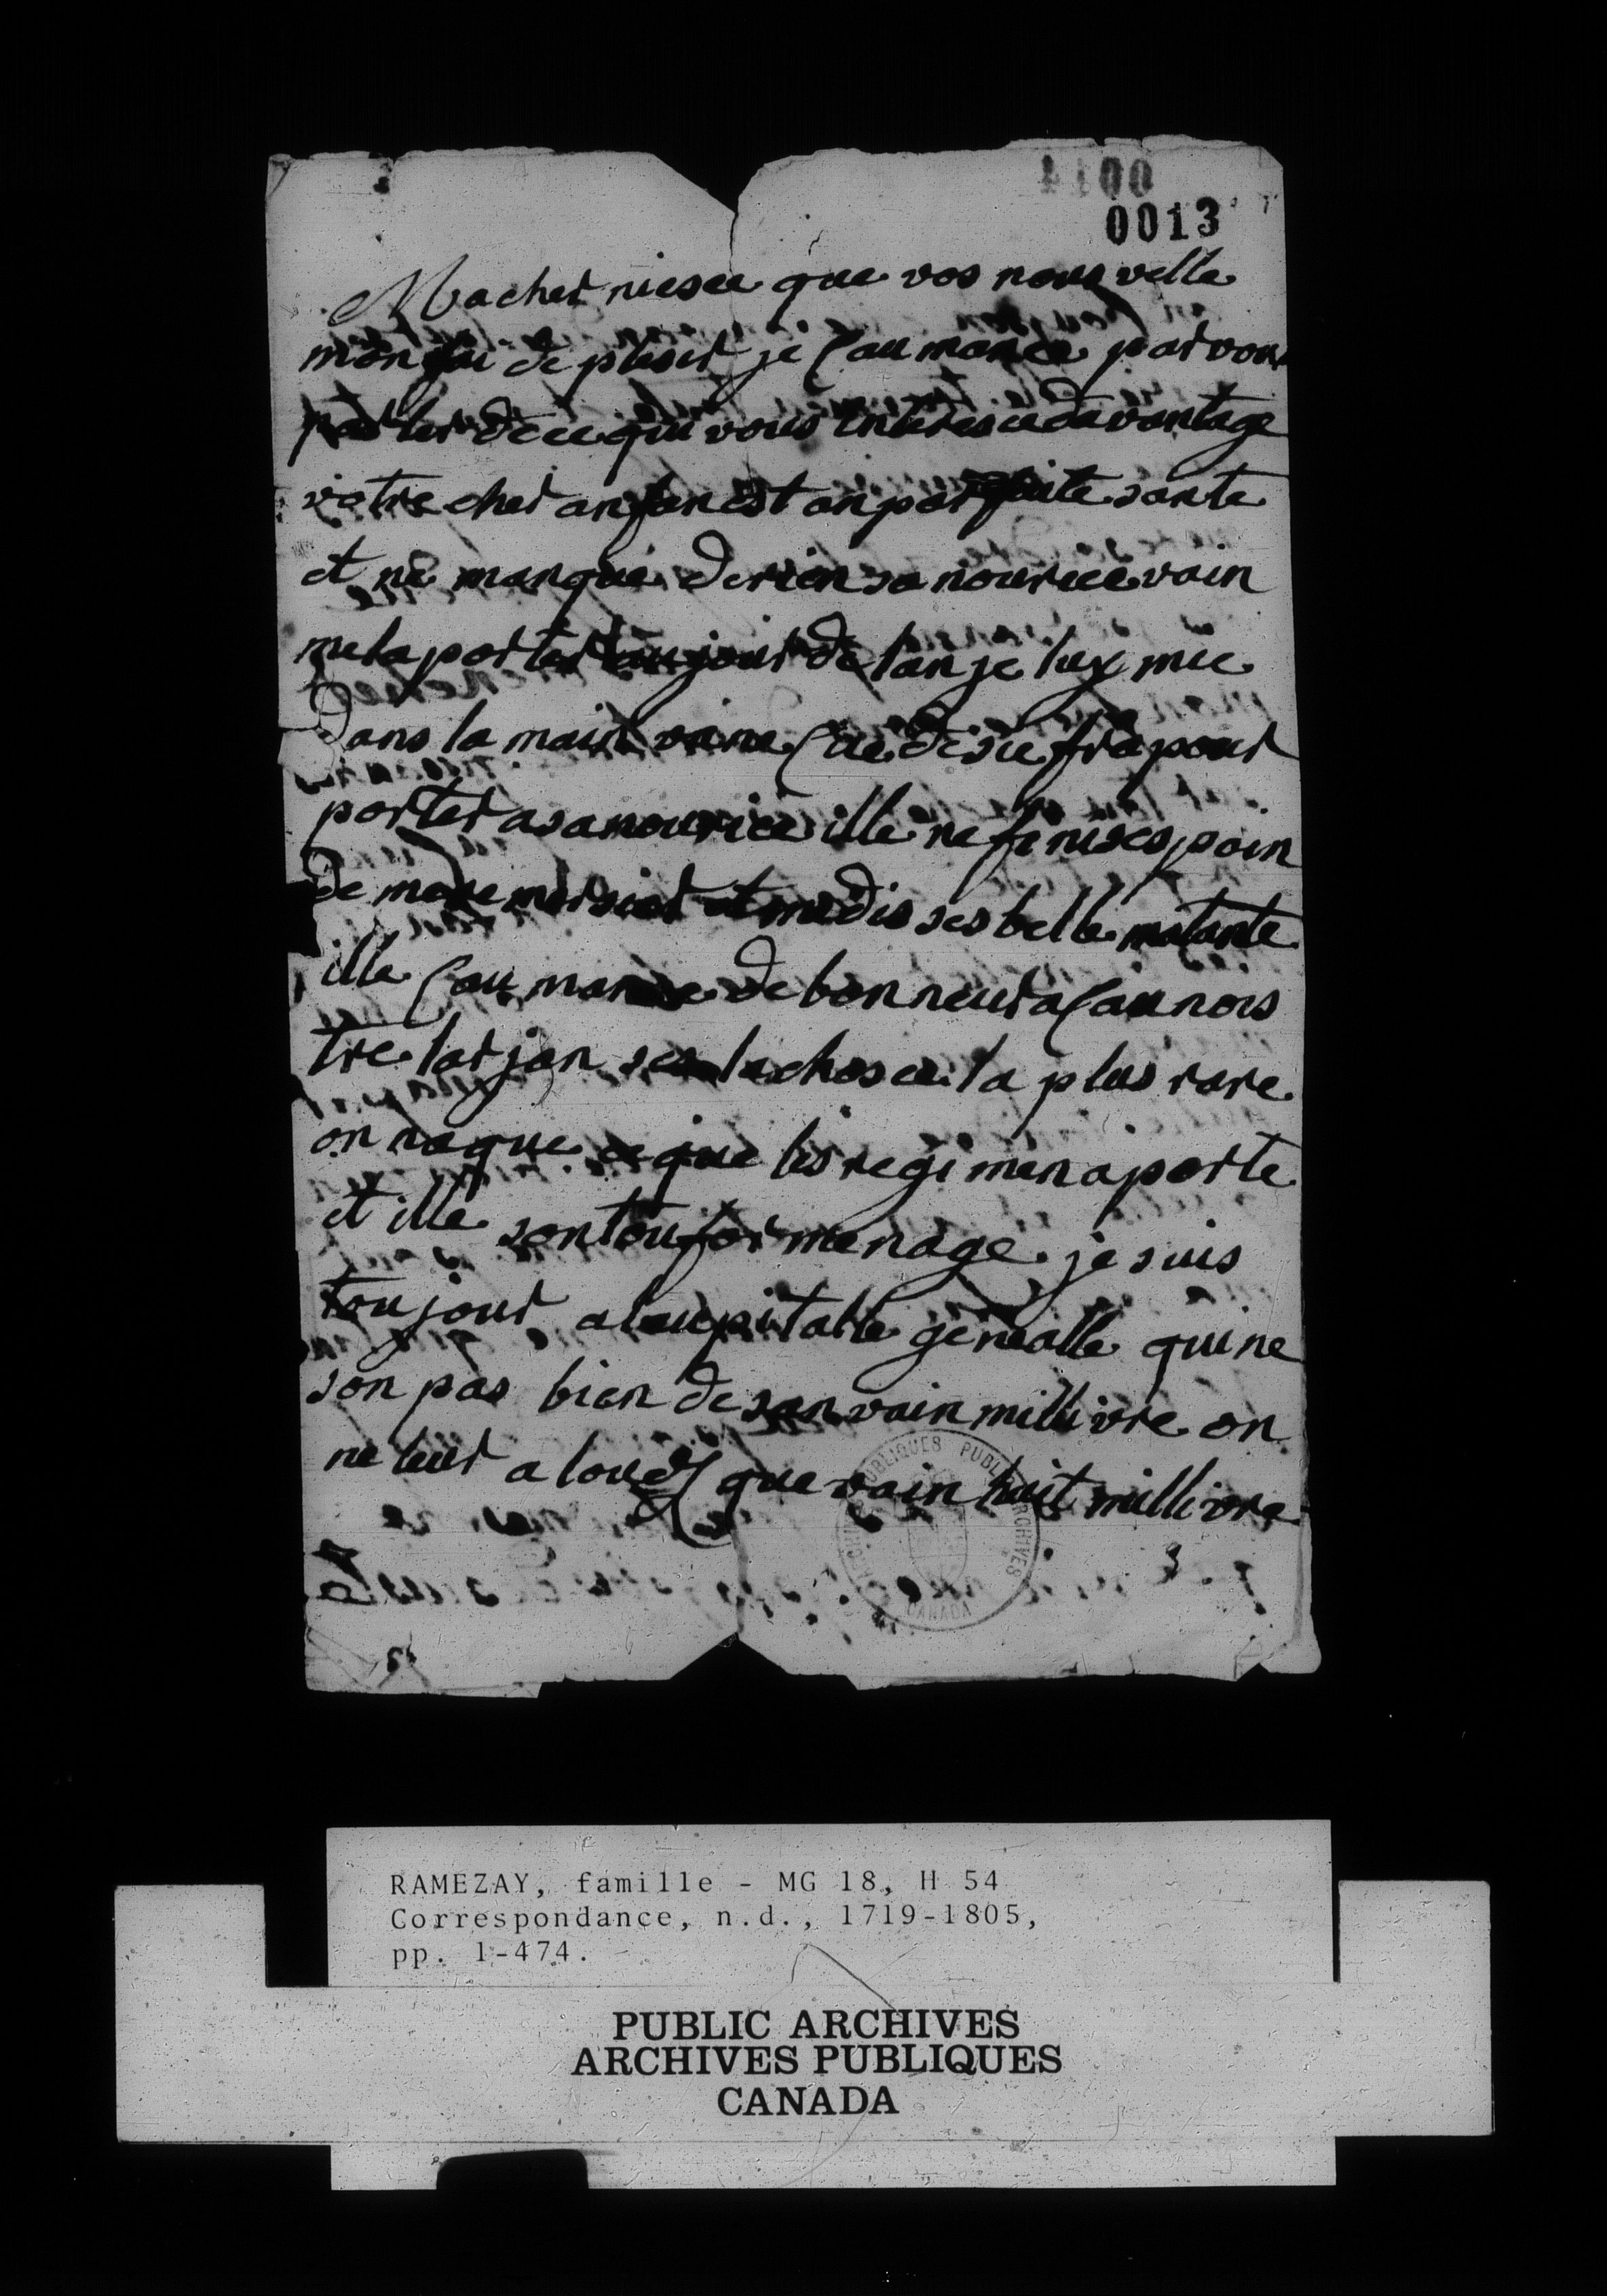 1100
0013
Ma cher niesce que vos nous velle
mon fai de plesir je Caumance par vous
par ler de ce qui vous interesce davantage
votre cher anfan est an parfaite sante
et ne manque de rien sa nourice vain
me la porter au jour de lan je luy mie
dans la main vaint Cai de sie fra pour
porter a sa nourice ille ne fi nises poin
de me re mersier et me dis ses belle matante
ille Caumance de bonneur a Caunois
tre lar jan ses la chosce la plus rare
on na que ce que les regi men aporte
et ille son tou for menage je suis
toujour a laupitalle generalle qui ne
son pas bien de san vain millivre on
ne leur a loué que vain huit millivre
ARCHIVES PUBLIQUES PUBLIC ARCHIVES
CANADA
RAMEZAY, famille - MG 18, H 54
Correspondance, n.d., 1719-1805,
pp. 1-474.
PUBLIC ARCHIVES
ARCHIVES PUBLIQUES
CANADA